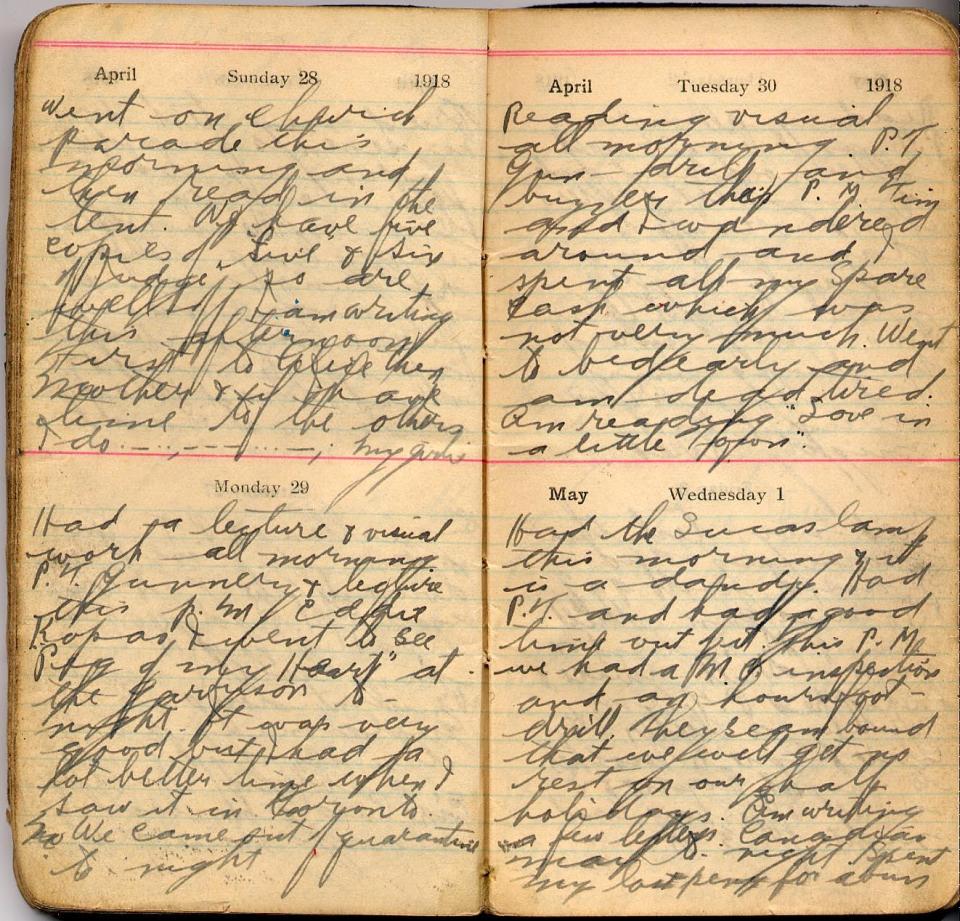 April Sunday 28 1918
Went on Church
parade this
morning and
then read in the
tent. We have five
copies of "Live" & six
of Judge so are
well off. I am writing
this afternoon
first to then
Mother & if I have
time to the others
I do
Monday 29
Had a lecture & visual
work all morning
P.T. Gunnery & lecture
this p.m. Eddie
& I went to see
"Peg of my Heart" at
the Garrison to-
night. It was very
good but I had a
lot better time when I
saw it in Toronto.
We came out of quarantine
to night
April Tuesday 30 1918
Reading visual
all morning P.T.
Gun-drill and
buzzer this P.M. Tim
and I wandered
around and
spent all my spare
cash which was
not very much. Went
to bed early and
am dead tired.
Am reading "Love in
a little Town".
May Wednesday 1
Had the Lucas lamp
this morning & it
is a dandy. Had
P.T. and had a good
time out of it. This P.M.
we had a M.O. inspection
and an hour foot-
drill. They seam bound
that we will get no
rest on our half
holidays. Am writing
a few letters. Canadian
mail to-night Spent
my last penny for a bun